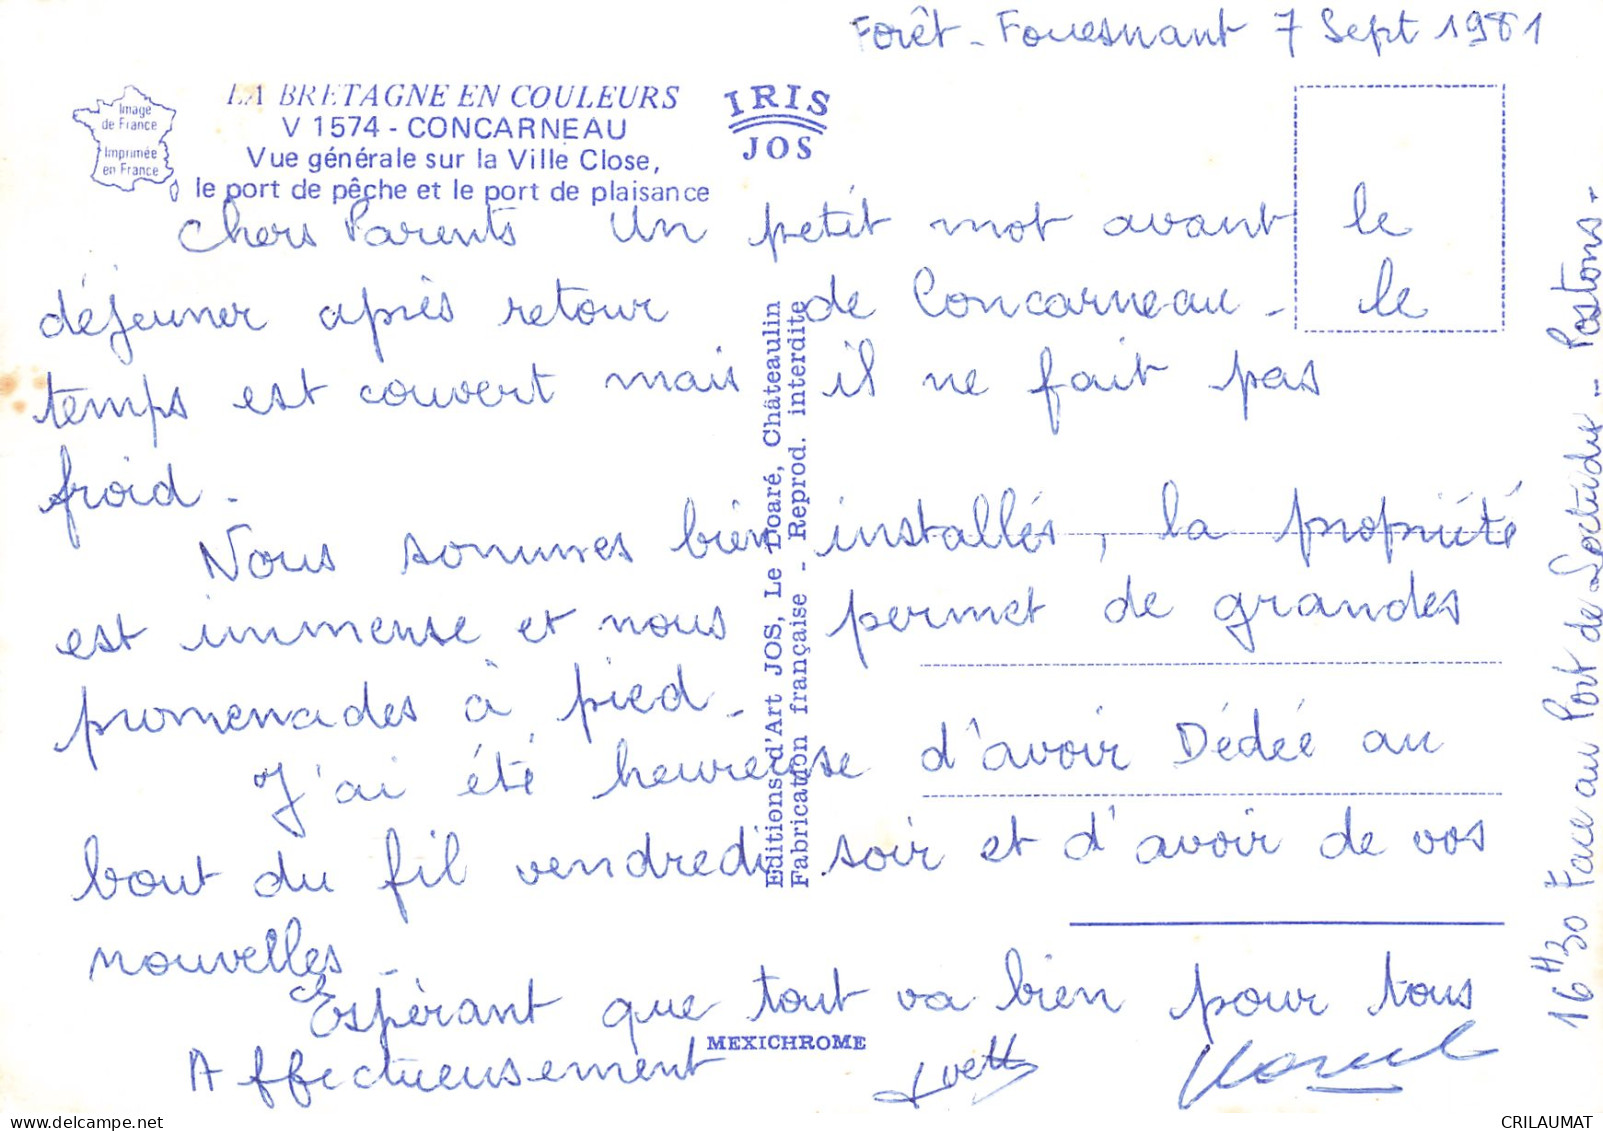 Forêt - Fouesnant 7 Sept 1981
Image
de France
Imprimée
en France
LA BRETAGNE EN COULEURS
V 1574 - CONCARNEAU
Vue générale sur la Ville Close,
le port de pêche et le port de plaisance
IRIS
JOS
Chers Parents Un petit mot avant le
déjeuner après retour de Concarneau - le
temps est couvert mais il ne fait pas
froid -
Nous sommes bien installés, la propriété
est immense et nous permet de grandes
promenades à pied -
J'ai été heureuse d'avoir Dédée au
bout du fil vendredi soir et d'avoir de vos
nouvelles -
Espèrant que tout va bien pour tous
Affectueusement
Yvette
Editions d'Art JOS, Le Doaré, Châteaulin
Fabrication française - Reprod. interdite
MEXICHROME
16H30 Face au Port de Loctudy - Postons -
CRILAUMAT